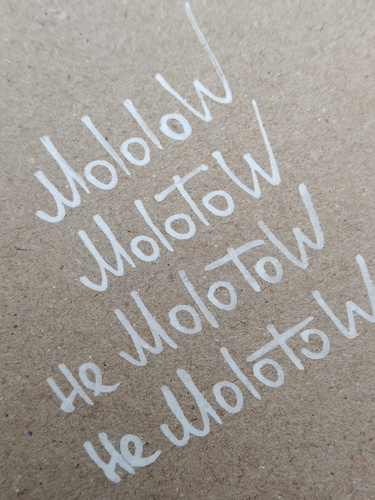 MololoW
MoloToW
He MoloToW
He MoloToW